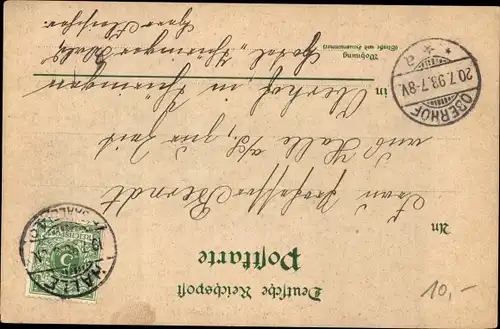 Deutsche Reichspost
Postkarte
An
Frau Professor Berndt
aus Halle a/S, zur Zeit
in Oberhof in Thüringen
Hotel „Thüringer Wald"
Wohnung
(Straße und Hausnummer)
OBERHOF
20.7.98.7-8V.
* a *
HALLE
5
10,-